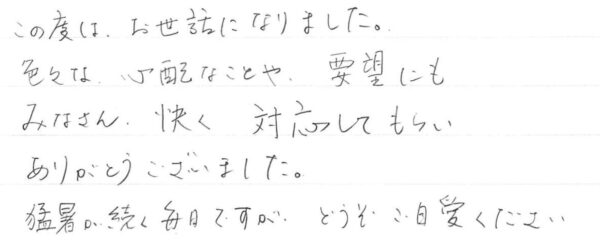 この度は、お世話になりました。
色々な、心配なことや、要望にも
みなさん、快く 対応してもらい
ありがとうございました。
猛暑が続く毎日ですが、どうぞご自愛ください